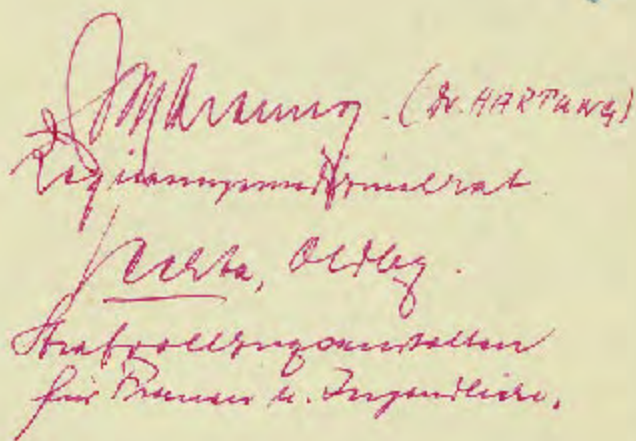 (Dr. HARTUNG)
Regierungsmedizinalrat
Vechta, Oldbg.
Strafvollzugsanstalten
für Frauen u. Jugendliche.